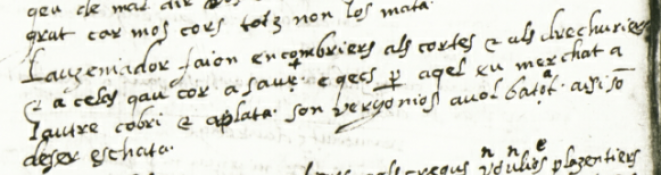 qeu de mal dir
grat car mos cors totz non los mata·
Lauzeniador faion encombriers als cortes e als drechuriers
e a celas qan cor asauz· e qecs p aqel eu merchat a
lautre cobri e aplata· son vergonios avol barat· aisi so
deser eschata·
plazentiers